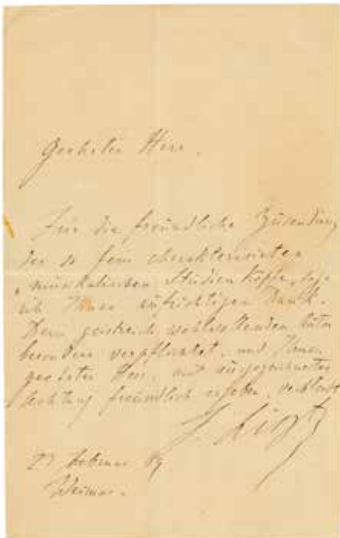 Geehrter Herr,
Für die freundliche Zusendung
der so fein charakterisirten
„musikalischen Studienköpfe" sage
ich Ihnen aufrichtigen Dank.
Dem geistreich wohlwollenden Autor
besonders verpflichtet, und Ihnen
geehrter Herr, mit ausgezeichneter
Achtung freundlich ergeben, verbleibt
F. Liszt
Februar
Weimar.